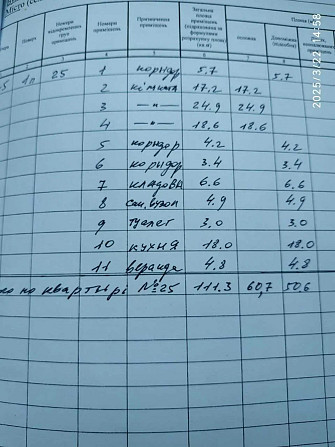 Номери відокремлених груп приміщень
Номери приміщень
Призначення приміщень
Загальна площа приміщень
основна
Допоміжна (підсобна)
2 3 4 5 6 7 8
5 1п 25 1 коридор 5.7 5.7
2 кімната 17,2 17,2
3 —"— 24.9 24.9
4 —"— 18,6 18.6
5 коридор 4.2 4.2
6 коридор 3.4 3.4
7 кладовы 6.6 6.6
8 сан.вузол 4.9 4.9
9 туалет 3,0 3.0
10 кухня 18.0 18.0
11 веранда 4.8 4.8
по квартирі №25 111.3 60,7 50,6
2025/3/22 14:58